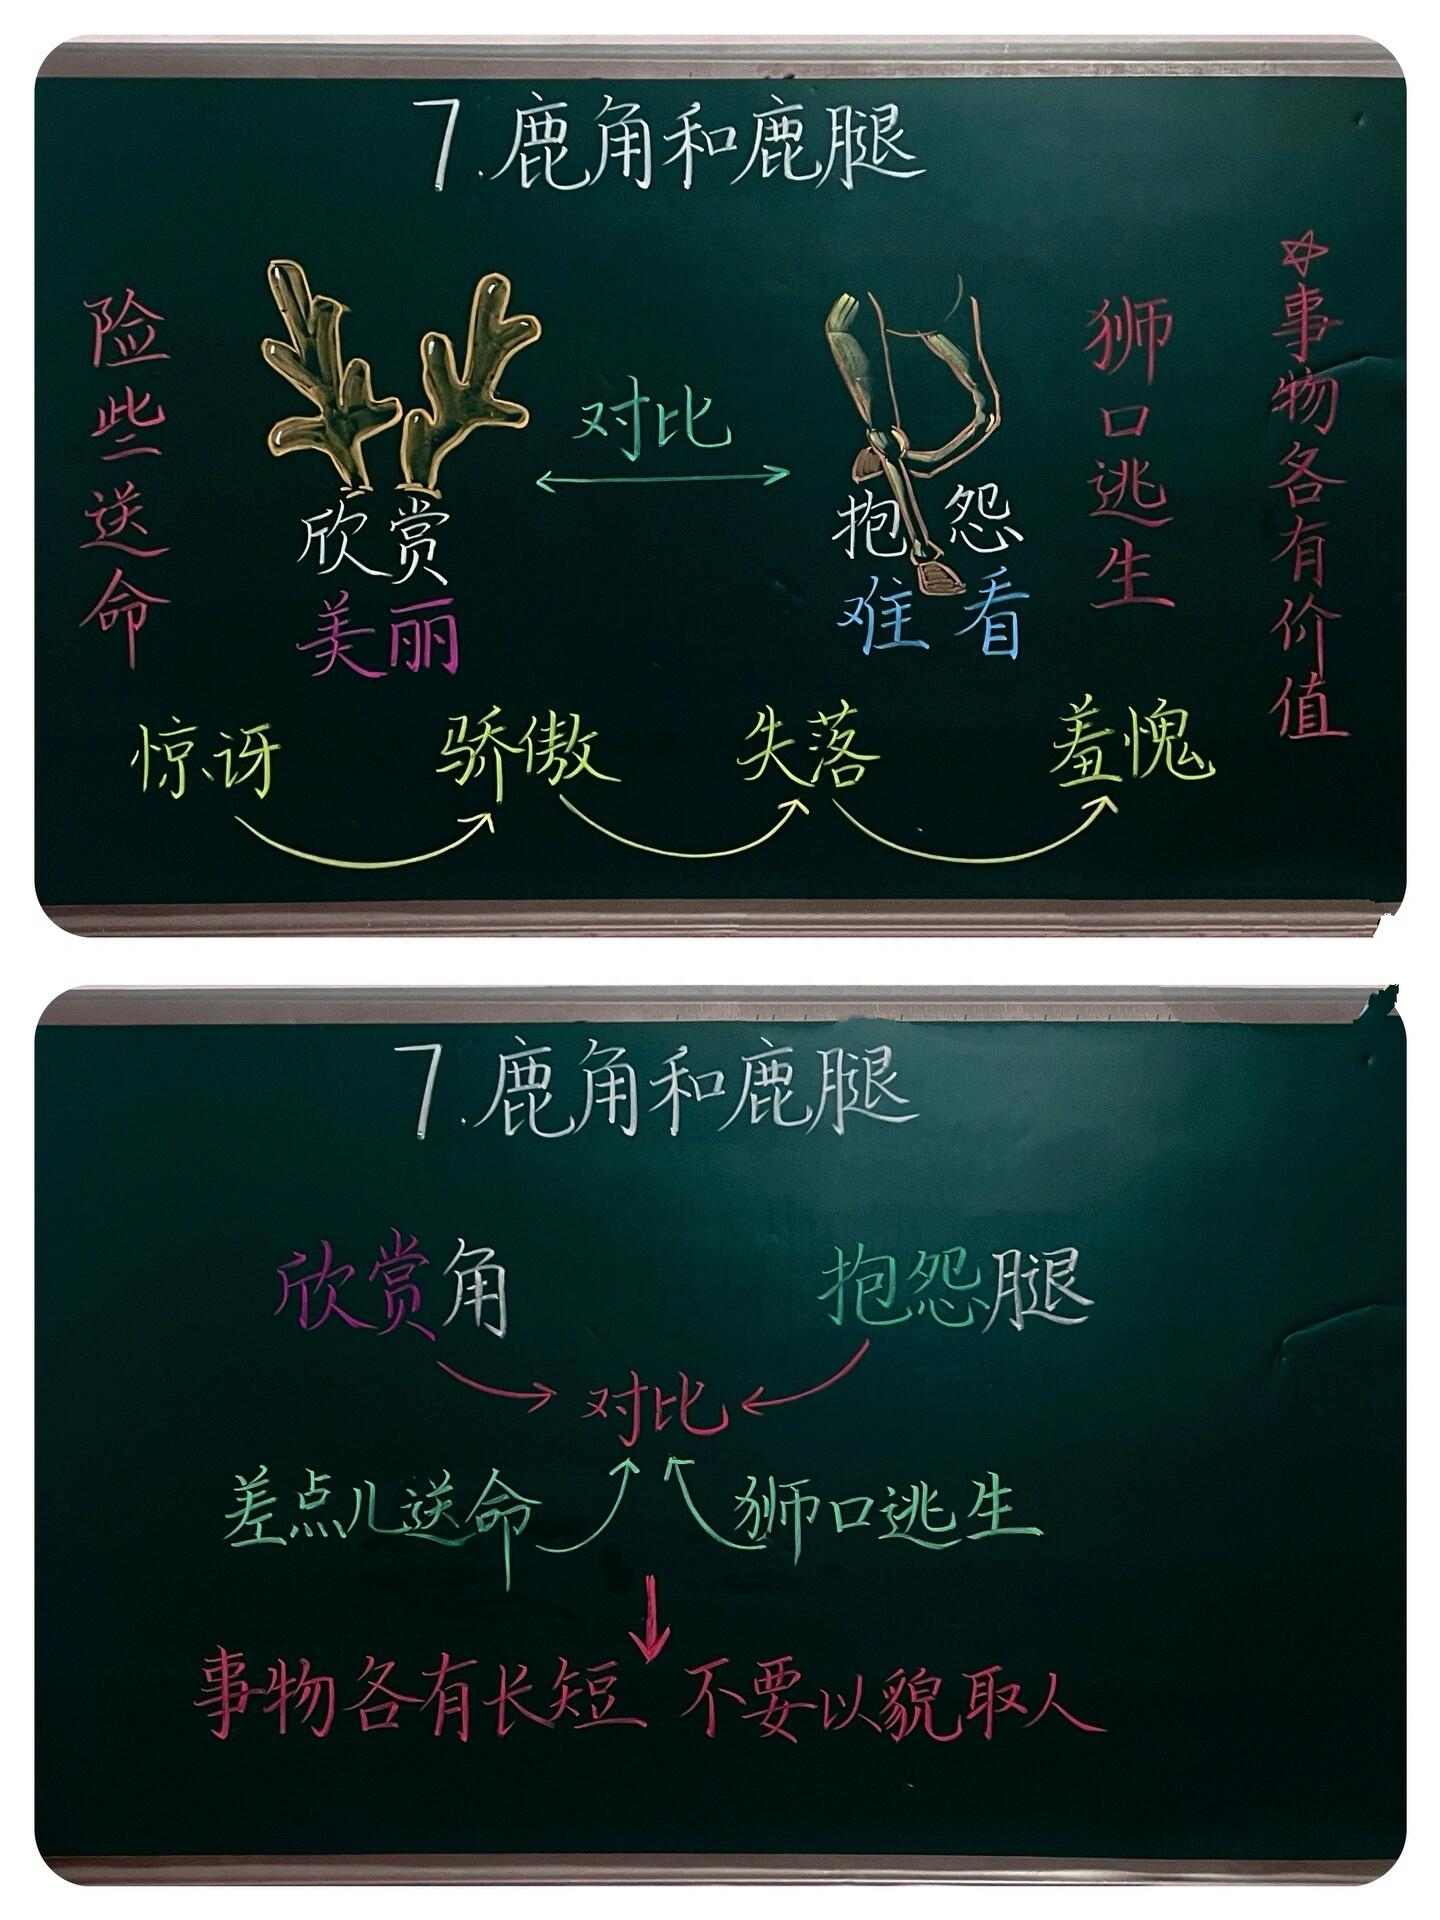 7.鹿角和鹿腿
险些送命
欣赏
美丽
对比
抱怨
难看
狮口逃生
☆事物各有价值
惊讶 骄傲 失落 羞愧
7.鹿角和鹿腿
欣赏角 抱怨腿
对比
差点儿送命 狮口逃生
事物各有长短 不要以貌取人